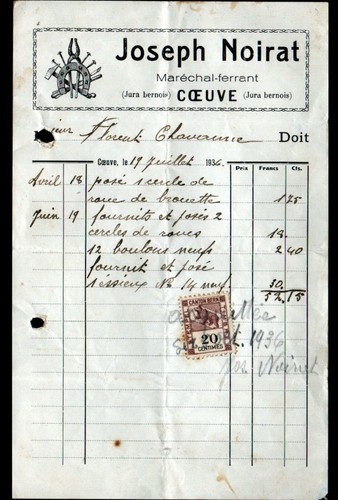 Joseph Noirat
Maréchal-ferrant
(Jura bernois) CŒUVE (Jura bernois)
Florent Chavanne Doit
Cœuve, le 19 Juillet 1936.
Prix Francs Cts.
Avril 18 posé 1 cercle de
roue de brouette 1 75
Juin 19 fournits et posés 2
cercles de roues 18.
12 boulons neufs 2 40
fournit et posé
1 essieux No 14 neuf. 30.
52,15
CANTON BERN
20
CENTIMES
1936
Jos. Noirat